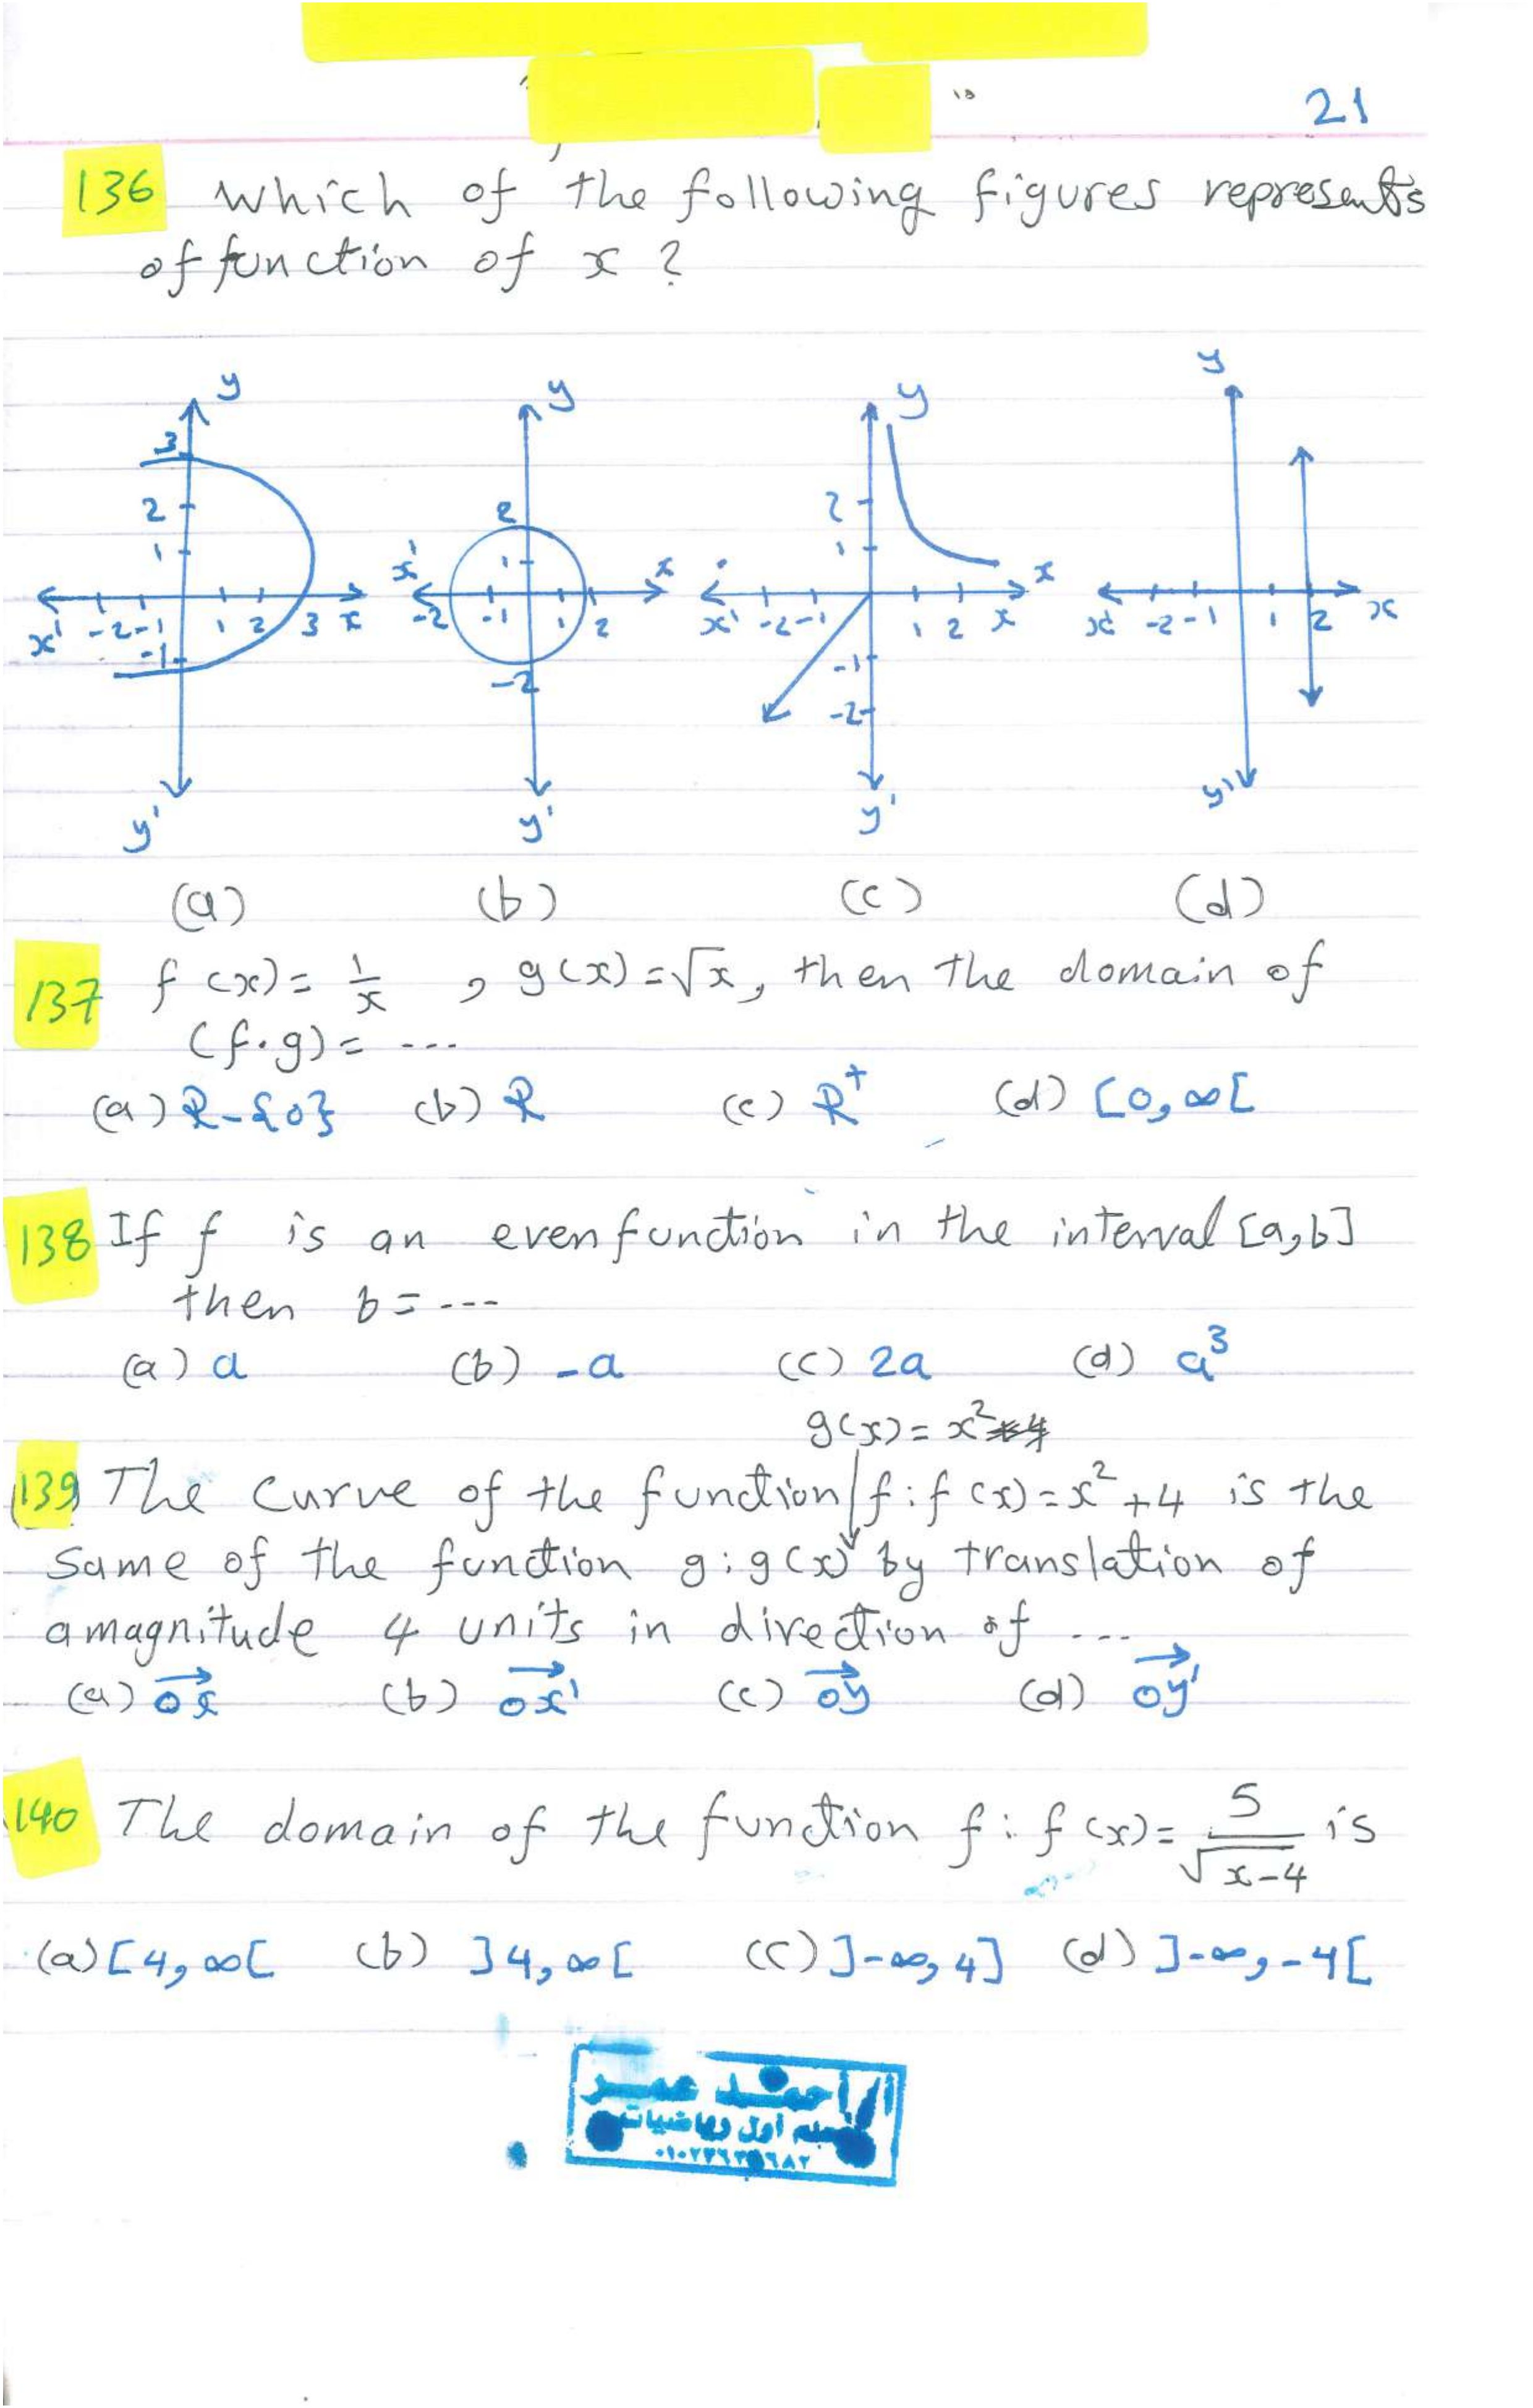 21
136 which of the following figures represents
of function of x ?
y y y y
3 2 1 -1 x' -2 -1 1 2 3 x y'
2 1 x' -2 -1 1 2 x -2 y'
2 1 x' -2 -1 1 2 x x -1 -2 y'
x' -2 -1 1 2 x y'
(a) (b) (c) (d)
137 f(x) = 1/x , g(x) = √x, then the domain of
(f.g) = ...
(a) R-{0} (b) R (c) R⁺ (d) [0,∞[
138 If f is an even function in the interval [a,b]
then b = ---
(a) a (b) -a (c) 2a (d) a³
g(x) = x²
139 The curve of the function f : f(x) = x² + 4 is the
same of the function g : g(x) by translation of
a magnitude 4 units in direction of ...
(a) →ox (b) →ox' (c) →oy (d) →oy'
140 The domain of the function f : f(x) = 5/√(x-4) is
(a) [4,∞[ (b) ]4,∞[ (c) ]-∞,4] (d) ]-∞,-4[
أحمد عمر
معلم أول رياضيات